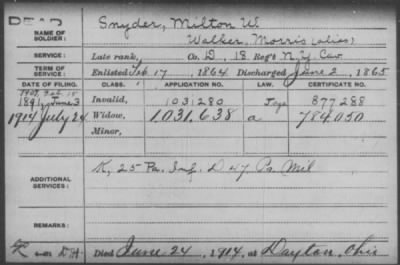 DEAD
NAME OF SOLDIER: Snyder, Milton W.
Walker, Morris (alias)
SERVICE: Late rank, Co. D, 18 Reg't N.Y. Cav.
TERM OF SERVICE: Enlisted Feb. 17, 1864 Discharged June 2, 1865
DATE OF FILING. CLASS. APPLICATION NO. LAW. CERTIFICATE NO.
1907, Feb. 15
1891, June 3 Invalid, 1031280 877288
1914 July 24 Widow, 1,031,638 a 784,050
Minor,
ADDITIONAL SERVICES: K, 25 Pa. Inf. D 47 Pa Mil
REMARKS:
Died June 24, 1914, at Dayton, Ohio